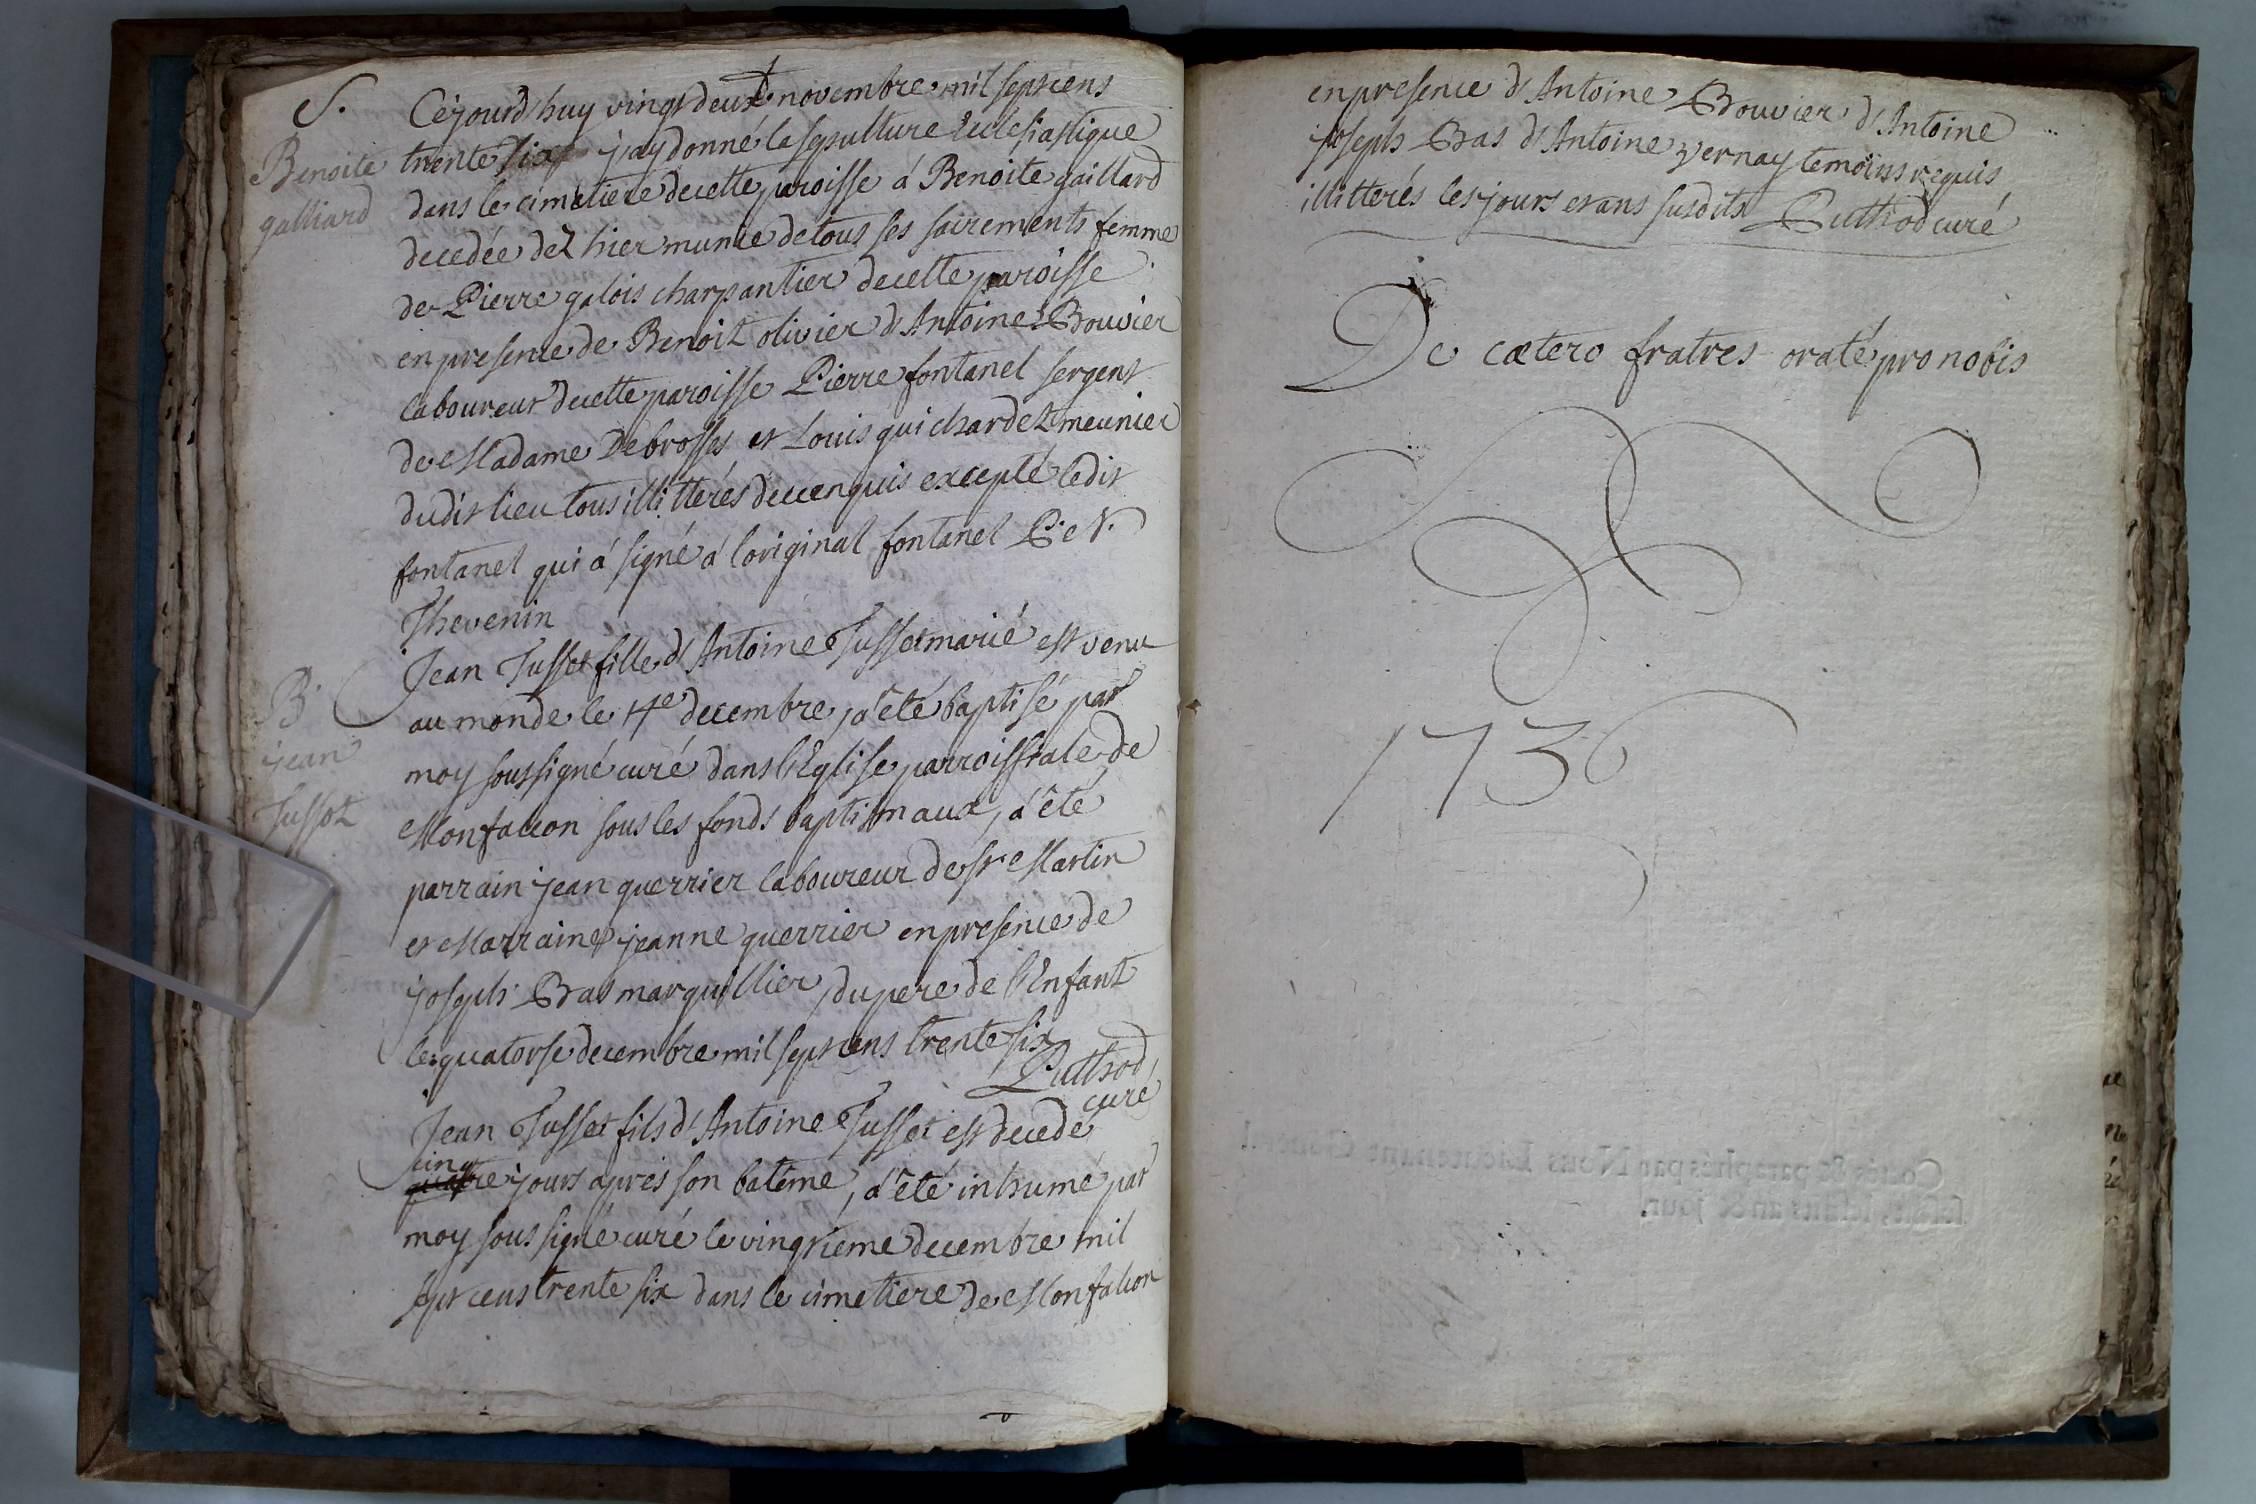 S.
Benoite
galliard
Cejourd'huy vingt deux novembre mil sept cens
trente six j'ay donné la sepulture Ecclesiastique
dans le cimetiere de cette paroisse á Benoite gaillard
decedée dez hier munie de tous ses sacrements femme
de Pierre galois charpantier de cette paroisse
en presence de Benoit olivier d'Antoine Bouvier
laboureur de cette paroisse Pierre fontanel sergent
de Madame Debrosses et Louis guichardet meunier
dudit lieu tous illitterés de ce enquis excepté ledit
fontanel qui á signé á l'original fontanel P. e V.
Thevenin
B.
jean
Tussot
Jean Tusset fille d'Antoine Tusset marié est venu
au monde le 14e decembre, a'été baptisé par
moy soussigné curé dans l'Eglise parroissiale de
Monfalcon sous les fonds baptismaux, a'été
parrain jean guerrier laboureur de st Martin
et Marraine jeanne guerrier en presence de
joseph Bras marguillier, du pere de l'Enfant
le quatorse decembre mil sept cens trente six
Puthod
curé
Jean Tusset fils d'Antoine Tusset est decedé
cinq
quatre jours apres son batême, a'été inhumé par
moy soussigné curé le vingtieme decembre mil
sept cens trente six dans le cimetiere de Monfalcon
en presence d'Antoine Bouvier d'Antoine
joseph Bras d'Antoine vernay temoins requis
illitterés les jours et ans susdits Puthod curé
De cætero fratres orate pro nobis
1736
Cottés & paraphés par Nous Lieutenant General
jour.